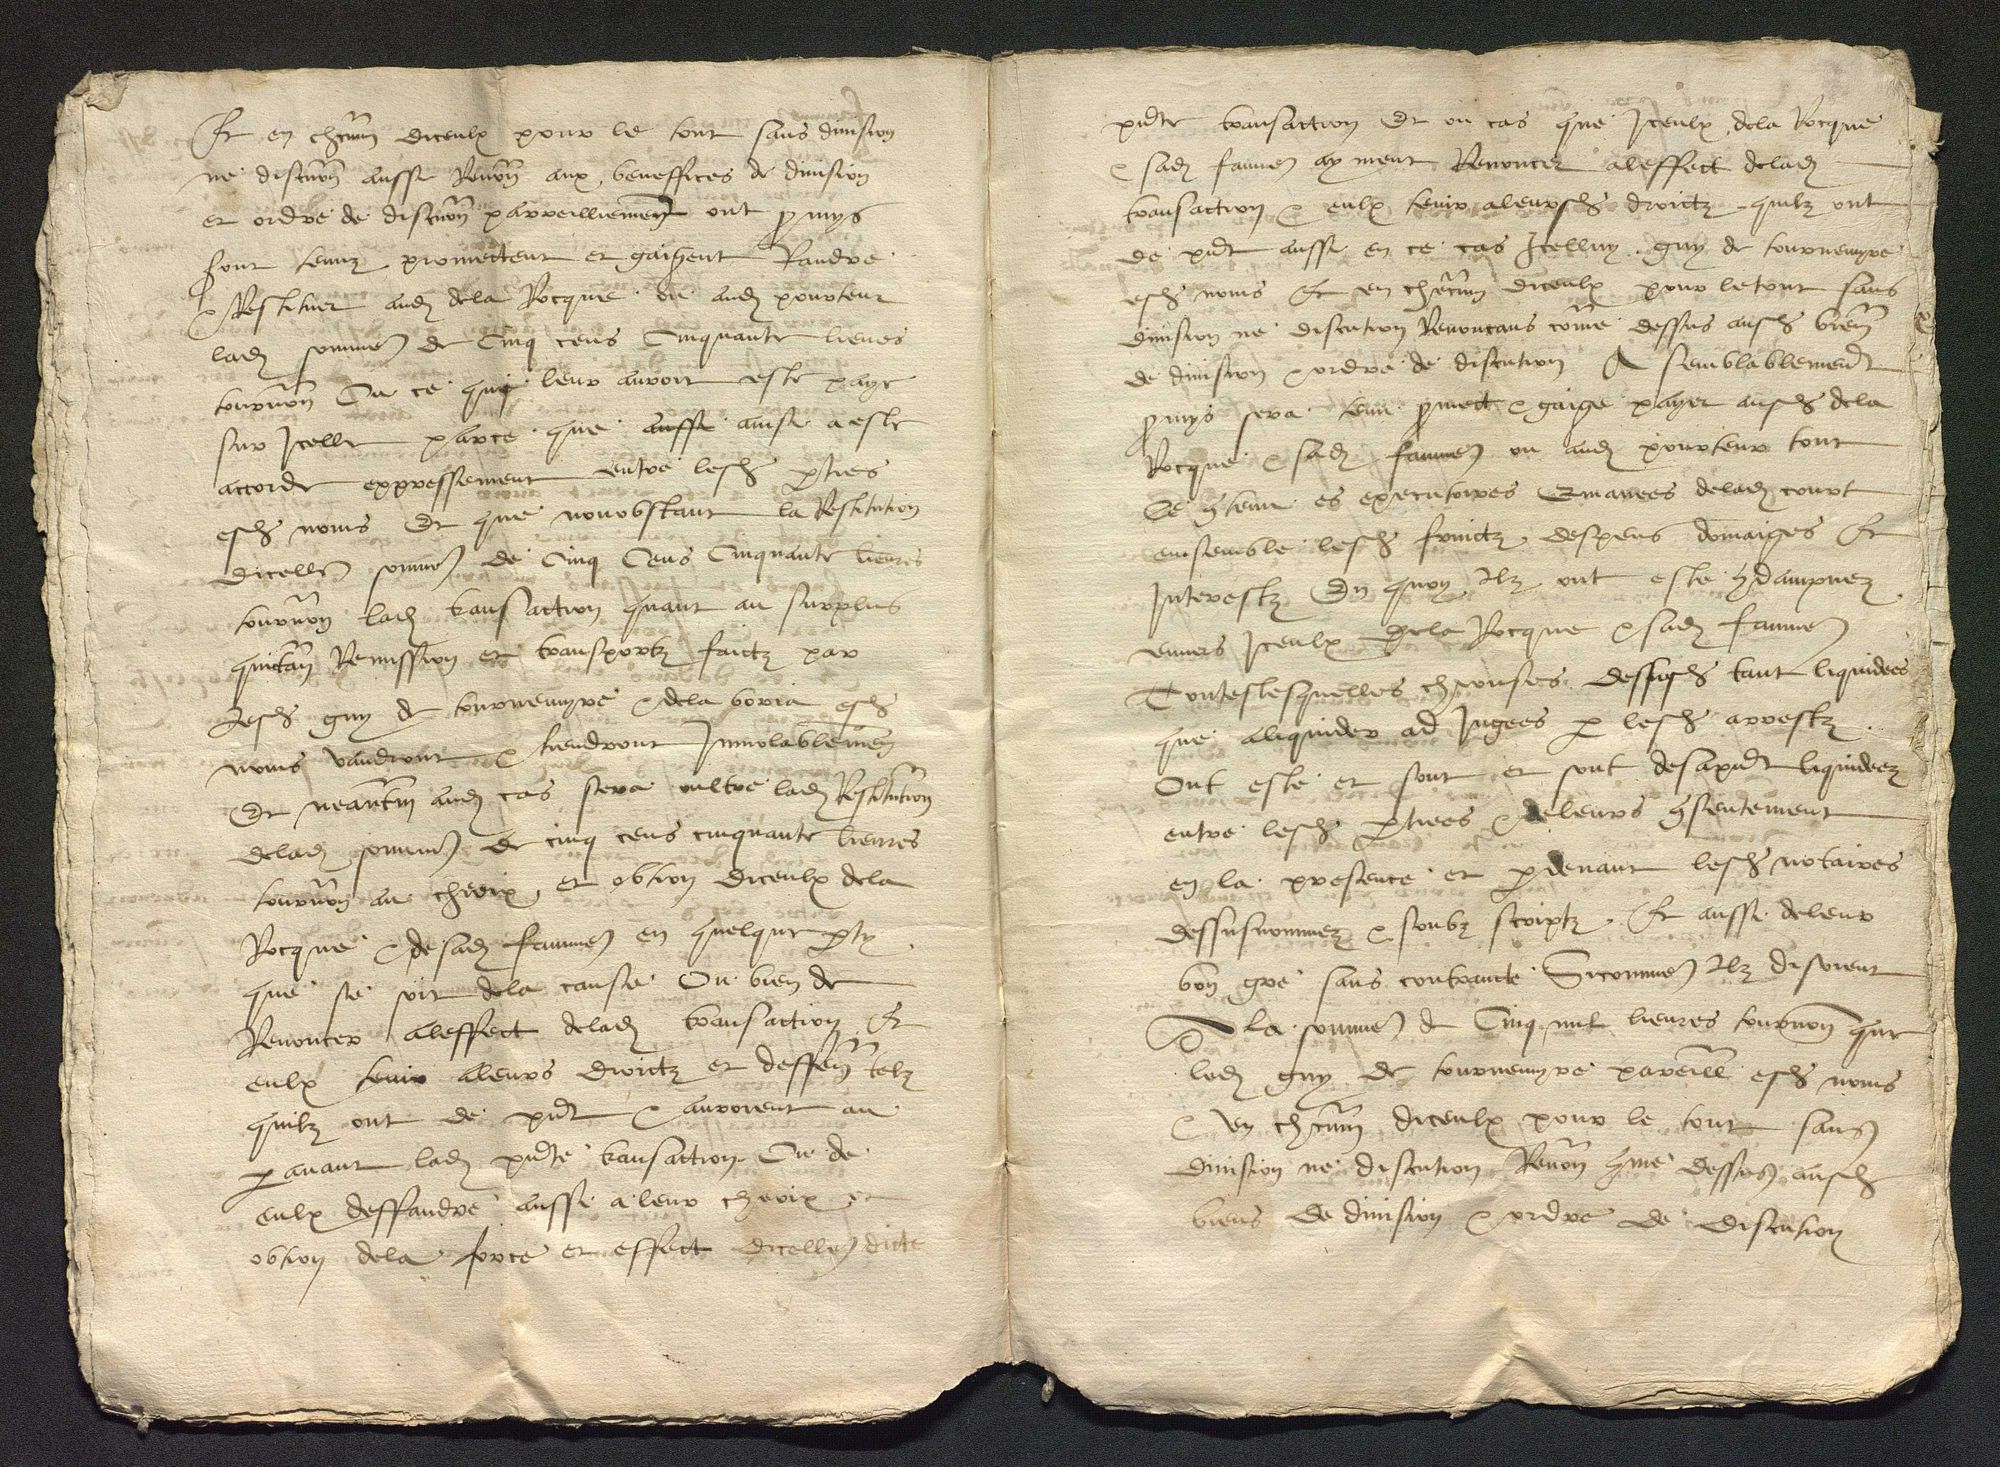 Et en ch͞cun diceulx pour le tout sans division
ne discu͞on aussi Reno͞n aux beneffices de division
et ordre de discu͞on parreilliement ont p̱mys
sont tenuz promettent et gaigent Randre
& Restituer aud dela Rocque ou aud porteur
lad somme de Cinq cens Cinquante livres
tourno͞n Ou ce qui leur auroit este paye
sur Icelle parce que aussi ainsi a este
accorde expressement entre lesd p̱ties
esd noms Et que nonobstant la Restitution
dicelle somme de Cinq Cens Cinquante livres
tourno͞n lad transaction quant au surplus
quicta͞n Remission et transportz faictz par
lesd guy de tournemyre & dela boria esd
noms vaudront & tiendront Inviolablemen
Et neantm͞ aud cas sera oultre lad Restitu͞tion
delad somme de cinq cens cinquante livres
tourno͞n au choix et obtion diceulx dela
Rocque & de sad famme en quelque p̱ty
que se soit dela cause Ou bien de
Renoncer aleffect delad transaction Et
eulx tenir aleurs droictz et deffen͞ telz
quilz ont de p͞nt & avoient au
p̱avant lad p͞nte transaction Ou de
eulx deffandre aussi a leur choix et
obtion dela force et effect dicelle dicte
p͞nte transaction Et ou cas que Iceulx dela Rocque
& sad famme ayment Renoncer aleffect delad
transaction & eulx tenir aleursd droictz quilz ont
de p͞nt aussi en ce cas Icelluy guy de tournemyre
esd noms Et en ch͞cun diceulx pour letout sans
division ne discution Renoncans co͞me dessus ausd bie͞n
de division & ordre de discution A semblablement
p̱mys sera tenu p̱mect & gaige payer ausd dela
Rocque & sad famme ou aud porteur tout
Le ꝯtenu es executoires Emanees delad court
ensemble lesd fruictz despens domaiges Et
Interestz En quoy Ilz ont este ꝯdampnez
envers Iceulx dela Rocque & sad famme
Touteslesquelles chouses dessusd tant liquidees
que aliquider ad Jugees p̱ lesd arrestz
Ont este et sont et sont desap͞nt liquideez
entre lesd p̱tiees & deleurs ꝯsentement
en la presence et p̱devant lesd notaires
dessusnommez & soubz scriptz Et aussi deleur
bon gre sans contraincte Sicomme Ilz disoient
A la somme de Cinq mil livres tourno͞n que
led guy de tournemyre pareill͞ esd noms
& en ch͞cun diceulx pour le tout sans
division ne discution Reno͞n ꝯme dessus ausd
biens de division & ordre de discution